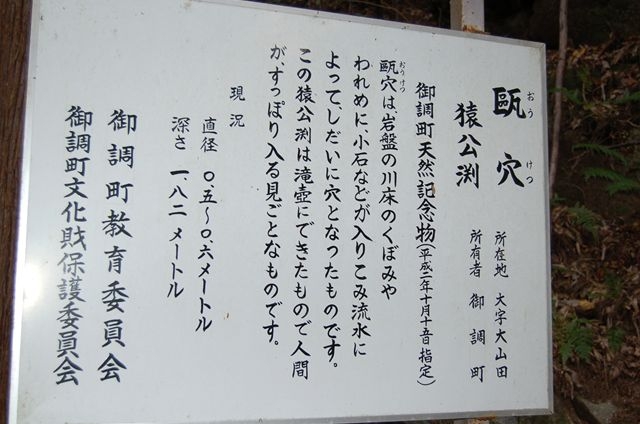 甌穴
おう けつ
猿公渕
所在地 大字大山田
所有者 御調町
御調町天然記念物(平成二年十月十五日指定)
甌穴は、岩盤の川床のくぼみや
おうけつ
われめに、小石などが入りこみ流水に
よって、しだいに穴となったものです。
この猿公渕は滝壺にできたもので人間
が、すっぽり入る見ごとなものです。
現況
直径 〇.五〜〇.六メートル
深さ 一.八二メートル
御調町教育委員会
御調町文化財保護委員会